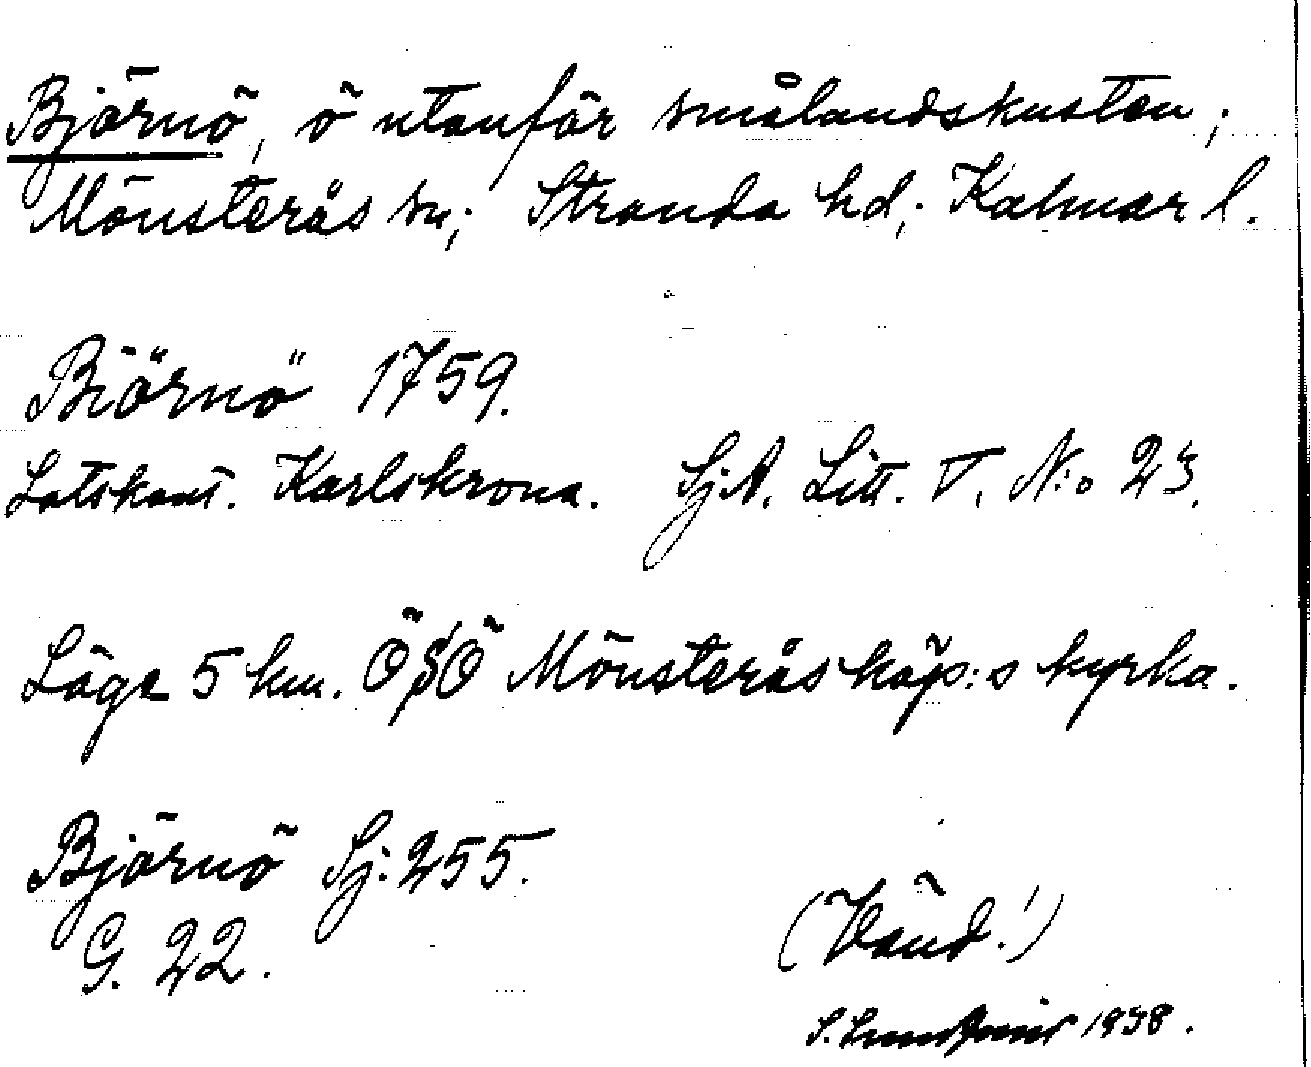 Björnö, ö utanför smålandskusten;
Mönsterås sn; Stranda hd; Kalmar l.
Biörnö 1759.
Lotskont. Karlskrona. Sj.A. Litt. V. N:o 23.
Läge 5 km. ÖSÖ Mönsterås köp:s kyrka.
Björnö Sj: 255.
G. 22.
(Vänd!)
S. 1938.